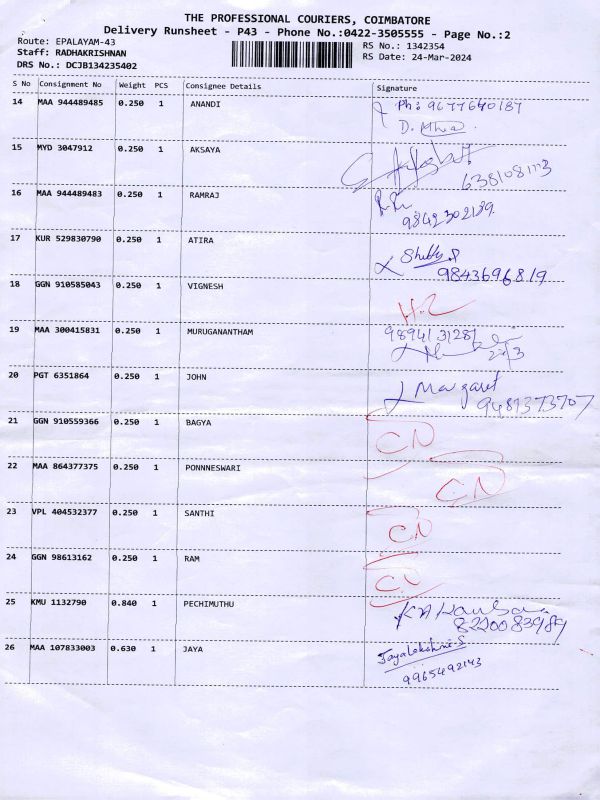 THE PROFESSIONAL COURIERS, COIMBATORE
Delivery Runsheet - P43 - Phone No.:0422-3505555 - Page No.:2
Route: EPALAYAM-43 RS No.: 1342354
Staff: RADHAKRISHNAN RS Date: 24-Mar-2024
DRS No.: DCJB134235402
S No Consignment No Weight PCS Consignee Details Signature
14 MAA 944489485 0.250 1 ANANDI Ph: 9677640187
D.
15 MYD 3047912 0.250 1 AKSAYA
16 MAA 944489483 0.250 1 RAMRAJ
9842302189
17 KUR 529830790 0.250 1 ATIRA
9843696819
18 GGN 910585043 0.250 1 VIGNESH
19 MAA 300415831 0.250 1 MURUGANANTHAM 9894131281
20 PGT 6351864 0.250 1 JOHN Margaret
21 GGN 910559366 0.250 1 BAGYA CN
22 MAA 864377375 0.250 1 PONNNESWARI CN
23 VPL 404532377 0.250 1 SANTHI CN
24 GGN 98613162 0.250 1 RAM
25 KMU 1132790 0.840 1 PECHIMUTHU
8220083989
26 MAA 107833003 0.630 1 JAYA Jayalakshmi.S
9965492143